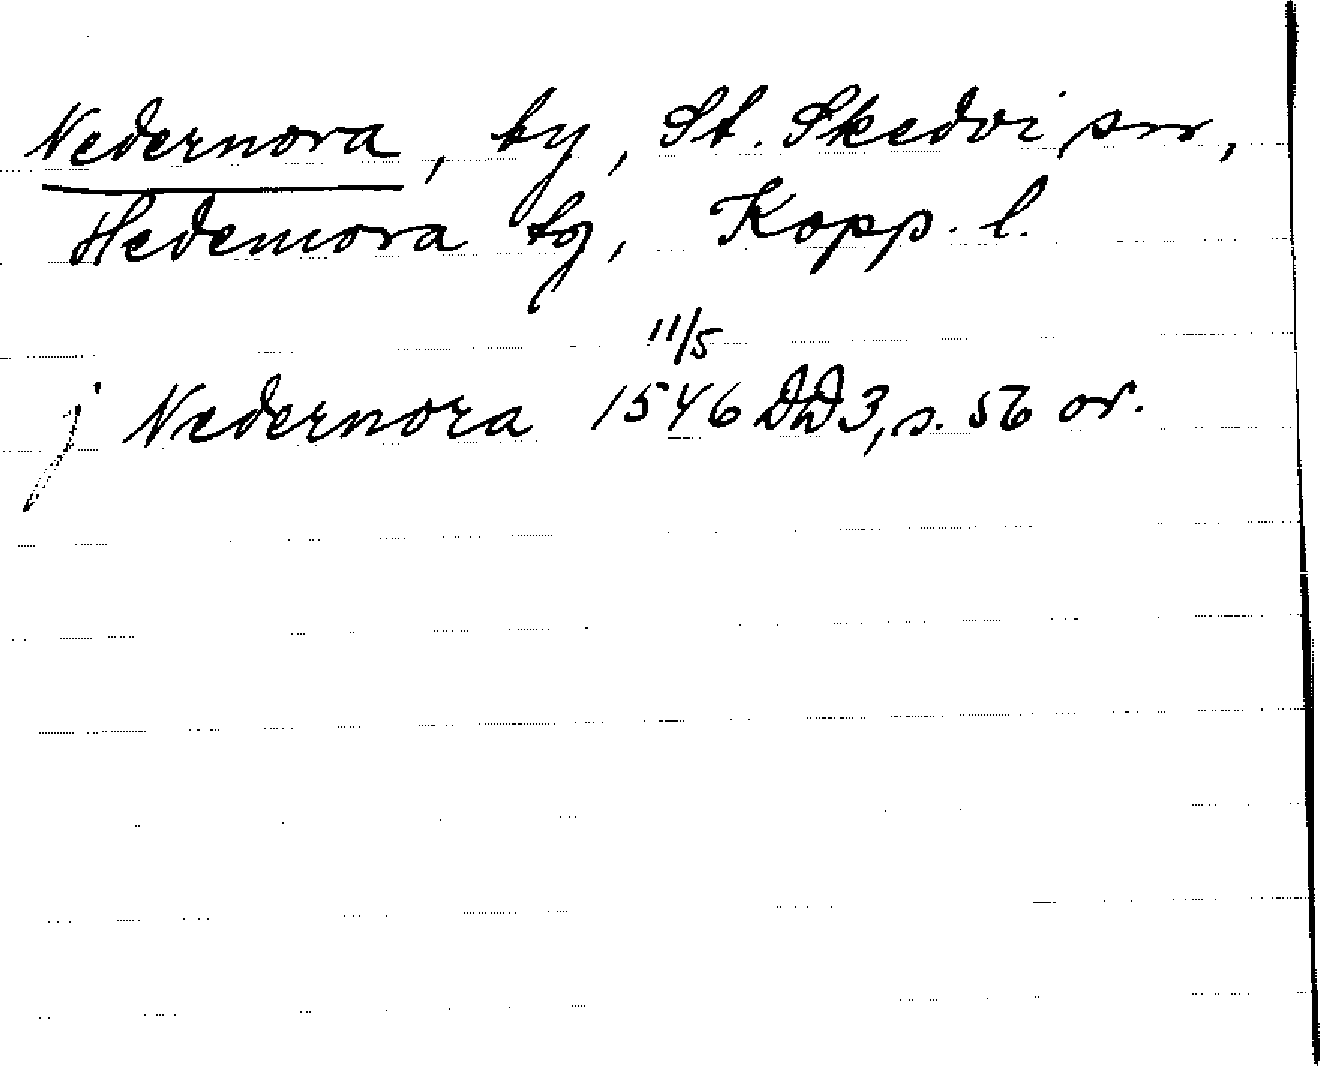 Nedernora, by, St. Skedvi sn,
Hedemora tg, Kopp. l.
11/5
j Nedernora 1546 DD3, s. 56 or.